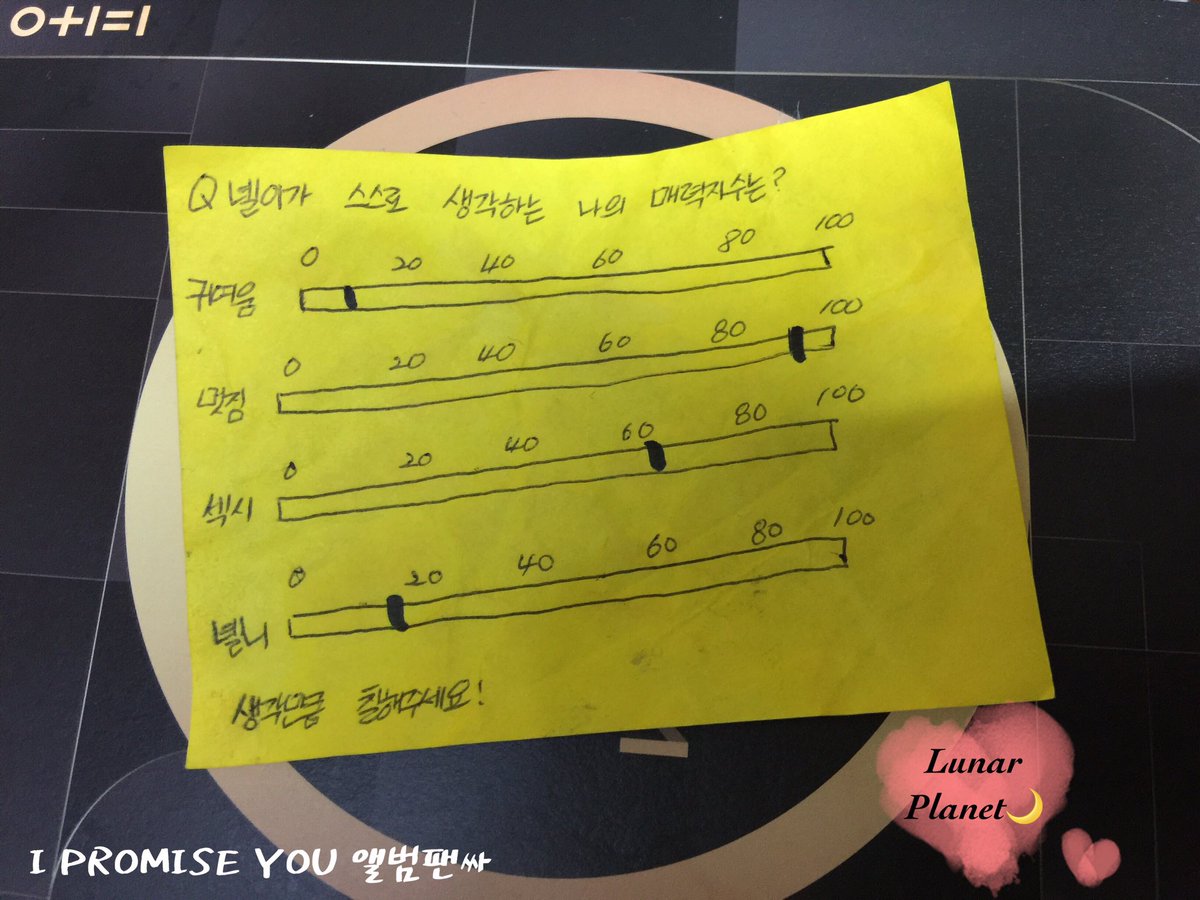 0+1=1
Q 넬이가 스스로 생각하는 나의 매력지수는?
0 20 40 60 80 100
귀여움
0 20 40 60 80 100
멋짐
0 20 40 60 80 100
섹시
0 20 40 60 80 100
넬니
생각만큼 칠해주세요!
Lunar
Planet🌙
I PROMISE YOU 앨범팬싸